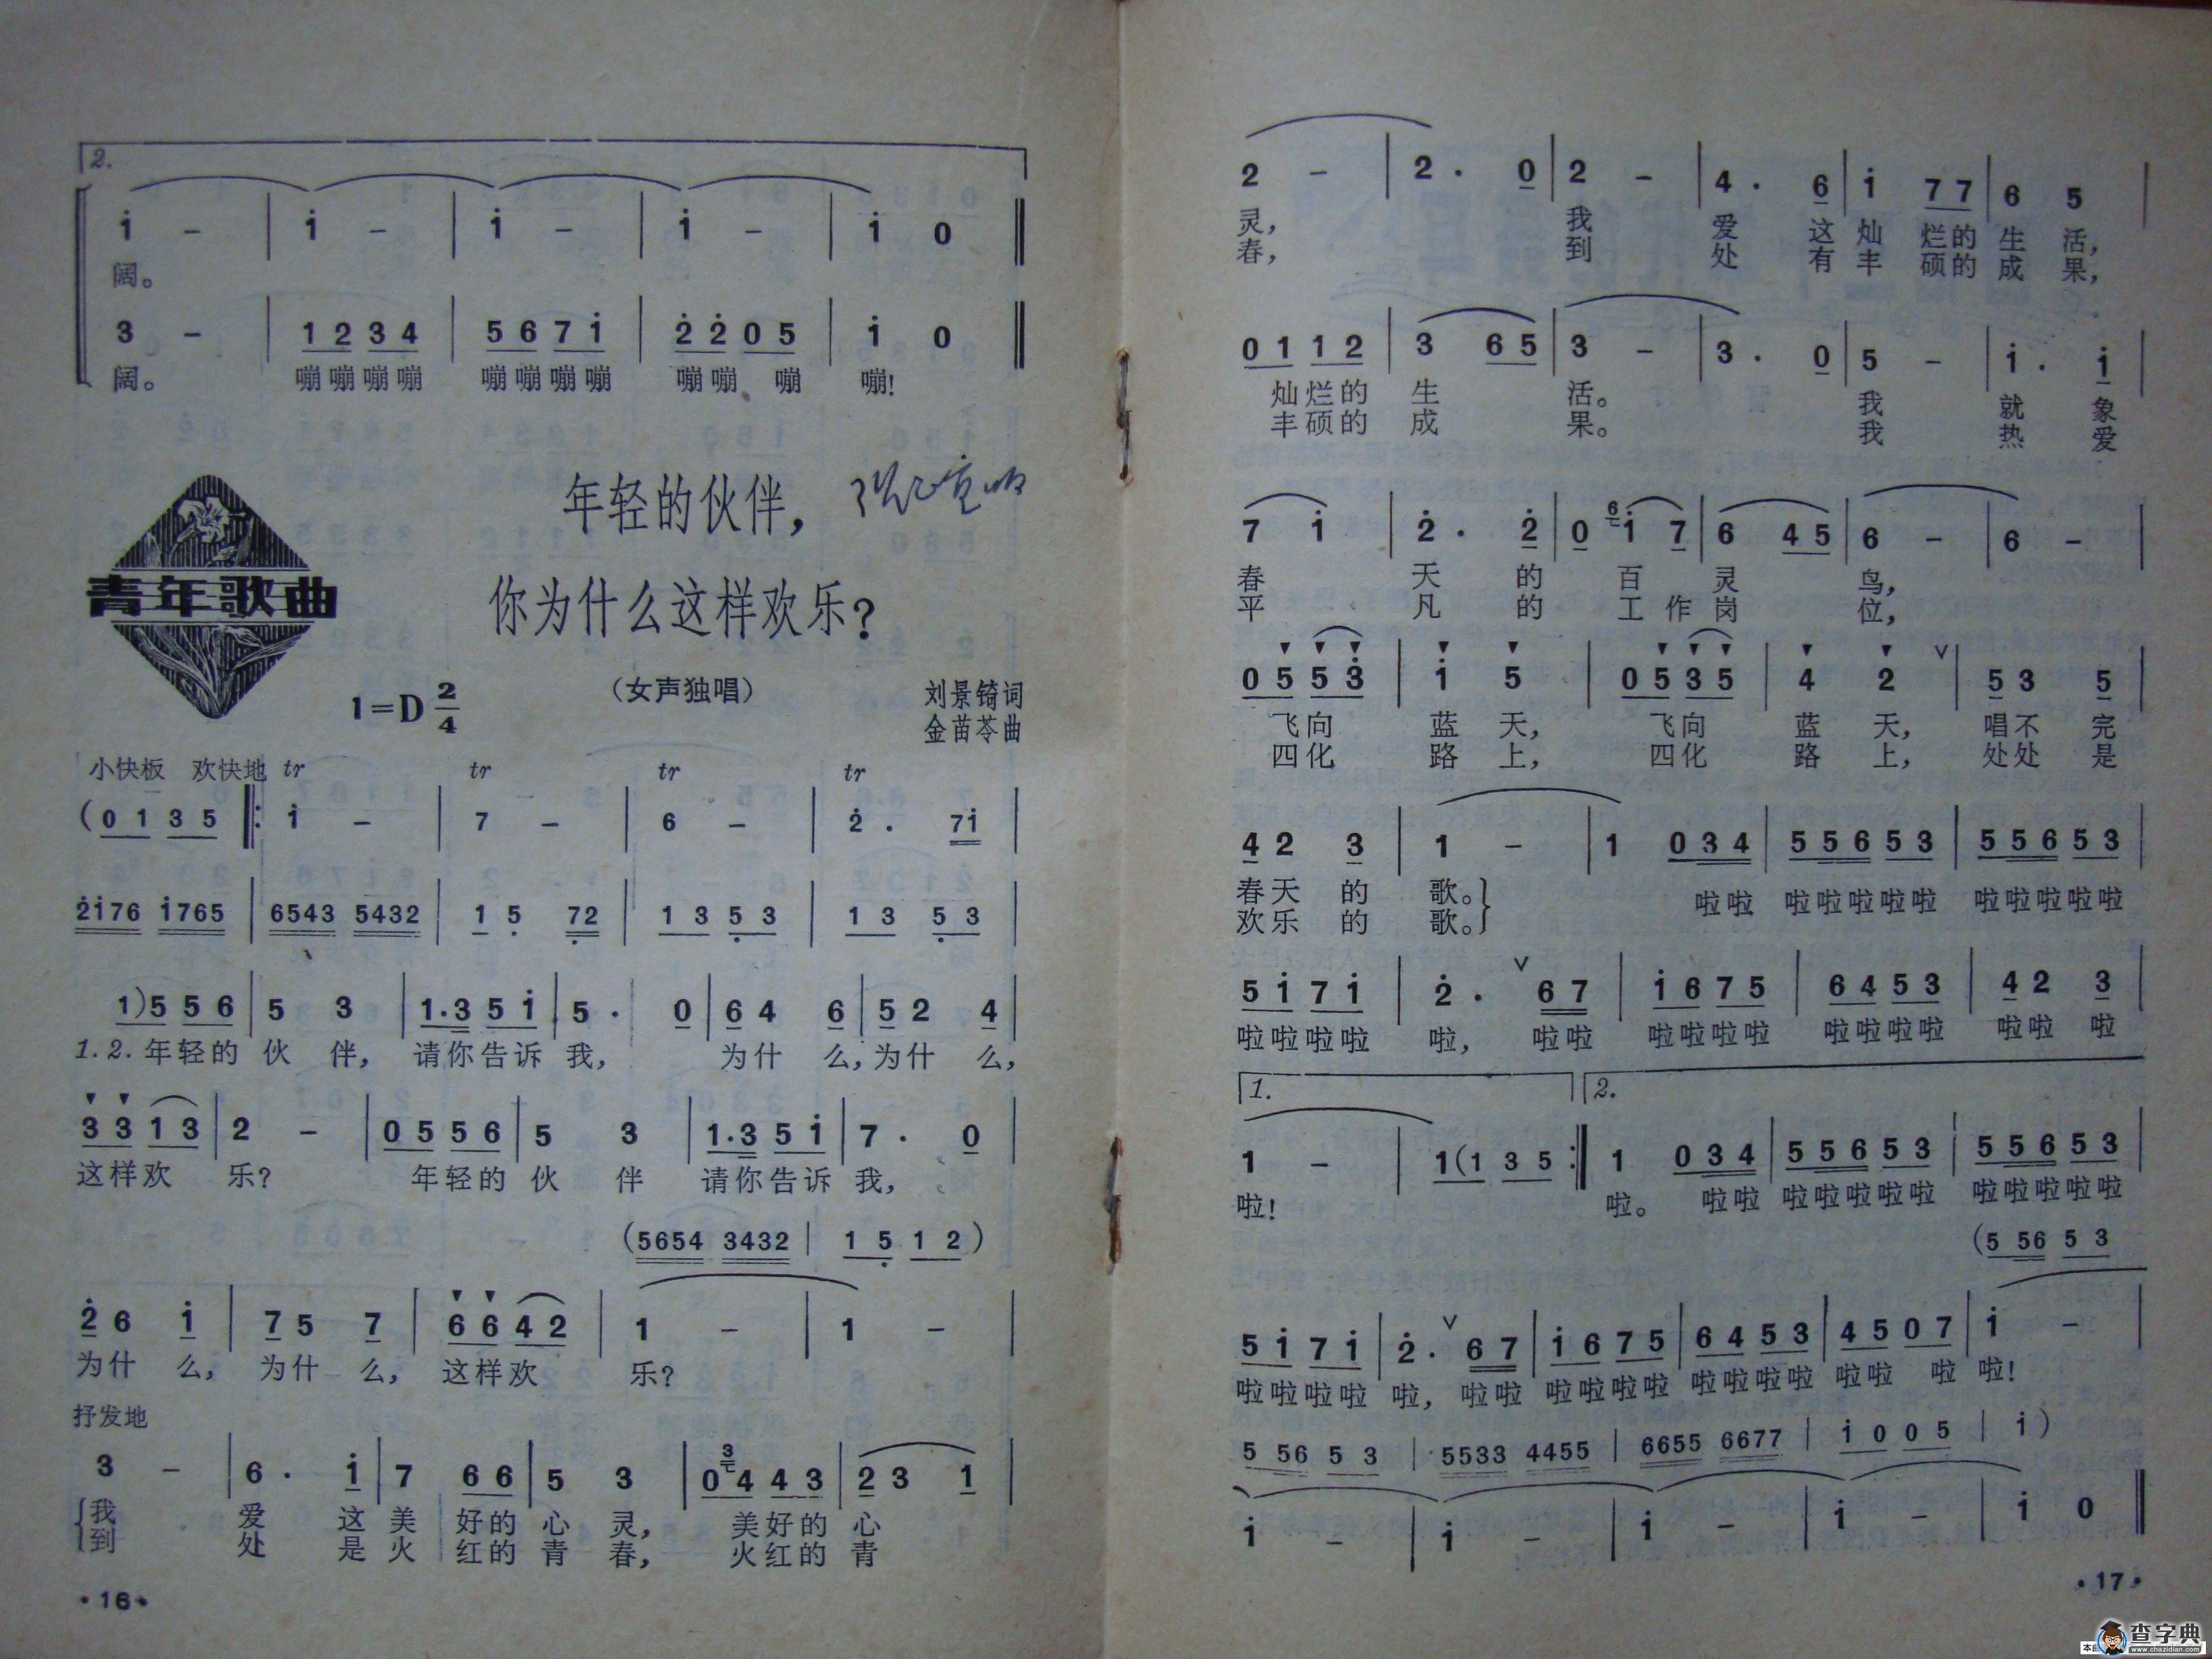 2.
i̇ - | i̇ - | i̇ - | i̇ - | i̇ 0
阔。
3 - | 1 2 3 4 | 5 6 7 i̇ | 2̇ 2̇ 0 5 | i̇ 0
阔。 嘣嘣嘣嘣 嘣嘣嘣嘣 嘣嘣 嘣 嘣!
青年歌曲
年轻的伙伴,
你为什么这样欢乐?
(女声独唱)
1=D 2/4
刘景锜词
金苗苓曲
小快板 欢快地 tr tr tr tr
(0 1 3 5 |: i̇ - | 7 - | 6 - | 2̇ . 7i̇ |
2̇i̇76 i̇765 | 6543 5432 | 1 5̣ 7̣2 | 1 3 5̣ 3 | 1 3 5̣ 3 |
1)5 5 6 | 5 3 | 1.3 5 i̇ | 5 . 0 | 6 4 6 | 5 2 4 |
1.2. 年轻的 伙 伴, 请你告诉 我, 为什 么,为什 么,
3 3 1 3 | 2 - | 0 5 5 6 | 5 3 | 1.3 5 i̇ | 7 . 0 |
这样欢 乐? 年轻的 伙 伴 请你告诉 我,
(5654 3432 | 1 5̣ 1 2)
2̇ 6 i̇ | 7 5 7 | 6 6 4 2 | 1 - | 1 - |
为什 么, 为什 么, 这样欢 乐?
抒发地
3 - | 6 . i̇ | 7 6 6 | 5 3 | 0 3 4 4 3 | 2 3 1 |
我 爱 这 美 好的 心 灵, 美好的 心
到 处 是 火 红的 青 春, 火红的 青
·16·
2 - | 2 . 0 | 2 - | 4 . 6 | i̇ 7 7 | 6 5 |
灵, 我 爱 这 灿 烂的 生 活,
春, 到 处 有 丰 硕的 成 果,
0 1 1 2 | 3 6 5 | 3 - | 3 . 0 | 5 - | i̇ . i̇ |
灿烂的 生 活。 我 就 象
丰硕的 成 果。 我 热 爱
7 i̇ | 2̇ . 2̇ | 0 6 i̇ 7 | 6 4 5 | 6 - | 6 - |
春 天 的 百 灵 鸟,
平 凡 的 工作岗 位,
0 5 5 3̇ | i̇ 5 | 0 5 3 5 | 4 2 ∨ | 5 3 5 |
飞向 蓝 天, 飞向 蓝 天, 唱不 完
四化 路 上, 四化 路 上, 处处 是
4 2 3 | 1 - | 1 0 3 4 | 5 5 6 5 3 | 5 5 6 5 3 |
春天 的 歌。 啦啦 啦啦啦啦啦 啦啦啦啦啦
欢乐 的 歌。
5 i̇ 7 i̇ | 2̇ . ∨ 6 7 | i̇ 6 7 5 | 6 4 5 3 | 4 2 3 |
啦啦啦啦 啦, 啦啦 啦啦啦啦 啦啦啦啦 啦啦 啦
1. 2.
1 - | 1(1 3 5 :| 1 0 3 4 | 5 5 6 5 3 | 5 5 6 5 3 |
啦! 啦。 啦啦 啦啦啦啦啦 啦啦啦啦啦
(5 56 5 3
5 i̇ 7 i̇ | 2̇ . ∨ 6 7 | i̇ 6 7 5 | 6 4 5 3 | 4 5 0 7 | i̇ - |
啦啦啦啦 啦, 啦啦 啦啦啦啦 啦啦啦啦 啦啦 啦 啦!
5 56 5 3 | 5533 4455 | 6655 6677 | i̇ 0 0 5 | i̇ )
i̇ - | i̇ - | i̇ - | i̇ - | i̇ 0
·17·
查字典
www.chazidian.com